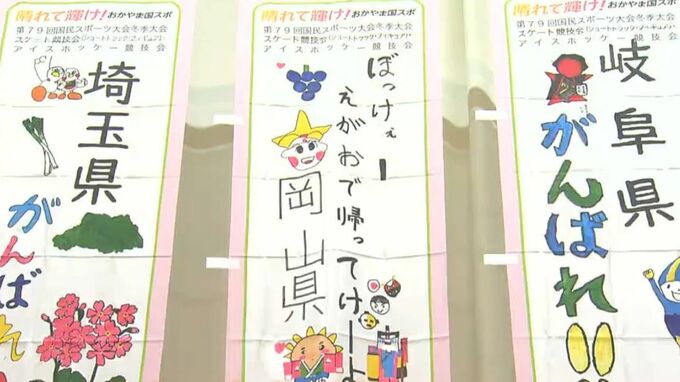 晴れて輝け!おかやま国スポ
第79回国民スポーツ大会冬季大会
スケート競技会(ショートトラック・フィギュア)
アイスホッケー競技会
埼玉県
がんばれ
晴れて輝け!おかやま国スポ
第79回国民スポーツ大会冬季大会
スケート競技会(ショートトラック・フィギュア)
アイスホッケー競技会
ぼっけぇ
えがおで帰ってけ
岡山県
晴れて輝け!おかやま国スポ
第79回国民スポーツ大会冬季大会
スケート競技会(ショートトラック・フィギュア)
アイスホッケー競技会
岐阜県
がんばれ!!